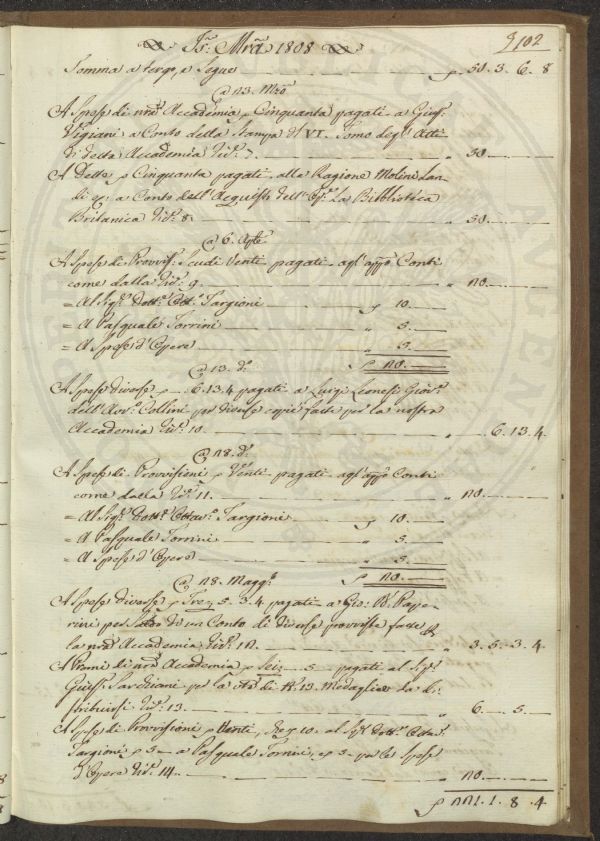 Is. Mrã 1808
102
Somma a tergo, e Segue 50. 3. 6. 8
@ 23. Mrõ
A Spese di nrã Accademia p Cinquanta pagati a Gius.
Vigiani a Conto della Stampa del VI. Tomo degl'Atti
di detta Accademia Nº. 7. 50
A Dette p Cinquanta pagati alla Ragione Molini Lan-
di e C: a Conto dell'Acquisto dell'Op. La Biblioteca
Britanica Nº. 8. 50
@ 6. Aple
A Spese di Provvis. Scudi Venti pagati agl'app. Conti
come dalla Nº. 9. 20
= Al Sig. Dott. Ott. Targioni 10.
= A Pasquale Torrini 5.
= A Spese d'Opere 5.
20.
@ 13. dº.
A Spese diverse p 6.13.4 pagati a Luigi Leonesi Giov.
dell'Avv. Collini per diverse copie fatte per la nostra
Accademia Nº. 10 6.13.4
@ 28. dº.
A Spese di Provvisioni p Venti pagati agl'app. Conti
come dalla Nº. 11. 20.
= Al Sig. Dott. Ottav. Targioni 10.
= A Pasquale Torrini 5.
= A Spese d'Opere 5.
20.
@ 28. Magg.
A Spese diverse p Tre 5.3.4 pagati a Gio. B. Pape-
rini per Saldo di un Conto di diverse provviste fatte p
la nrã Accademia Nº. 12. 3.5.3.4
A Premi di nrã Accademia p Sei 5 pagati al Sig.
Gius. Sarchiani per la di Nº. 13. Medaglie da di-
stribuirsi Nº. 13. 6. 5.
A Spese di Provvisioni p Venti, 10. al Sig. Dott. Ottav.
Targioni, p 5 a Pasquale Torrini, e p 5 per le Spese
d'Opere Nº. 14. 20.
221.1.8.4.